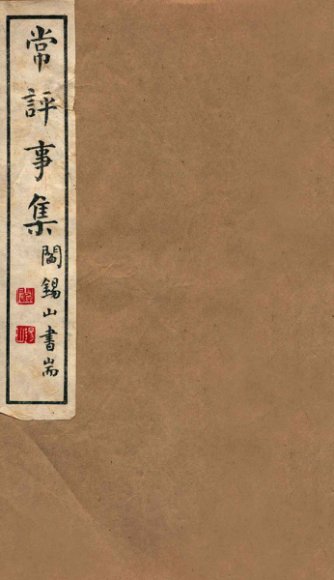 常評事集
閻錫山書耑